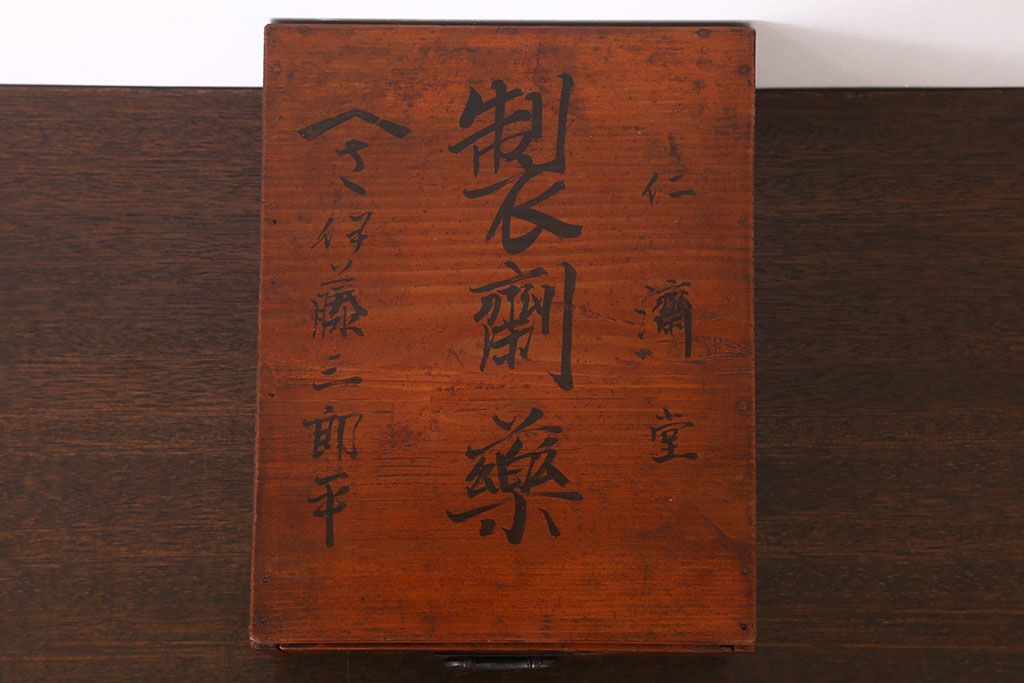 仁濟堂
製劑藥
さ伊藤三郎平